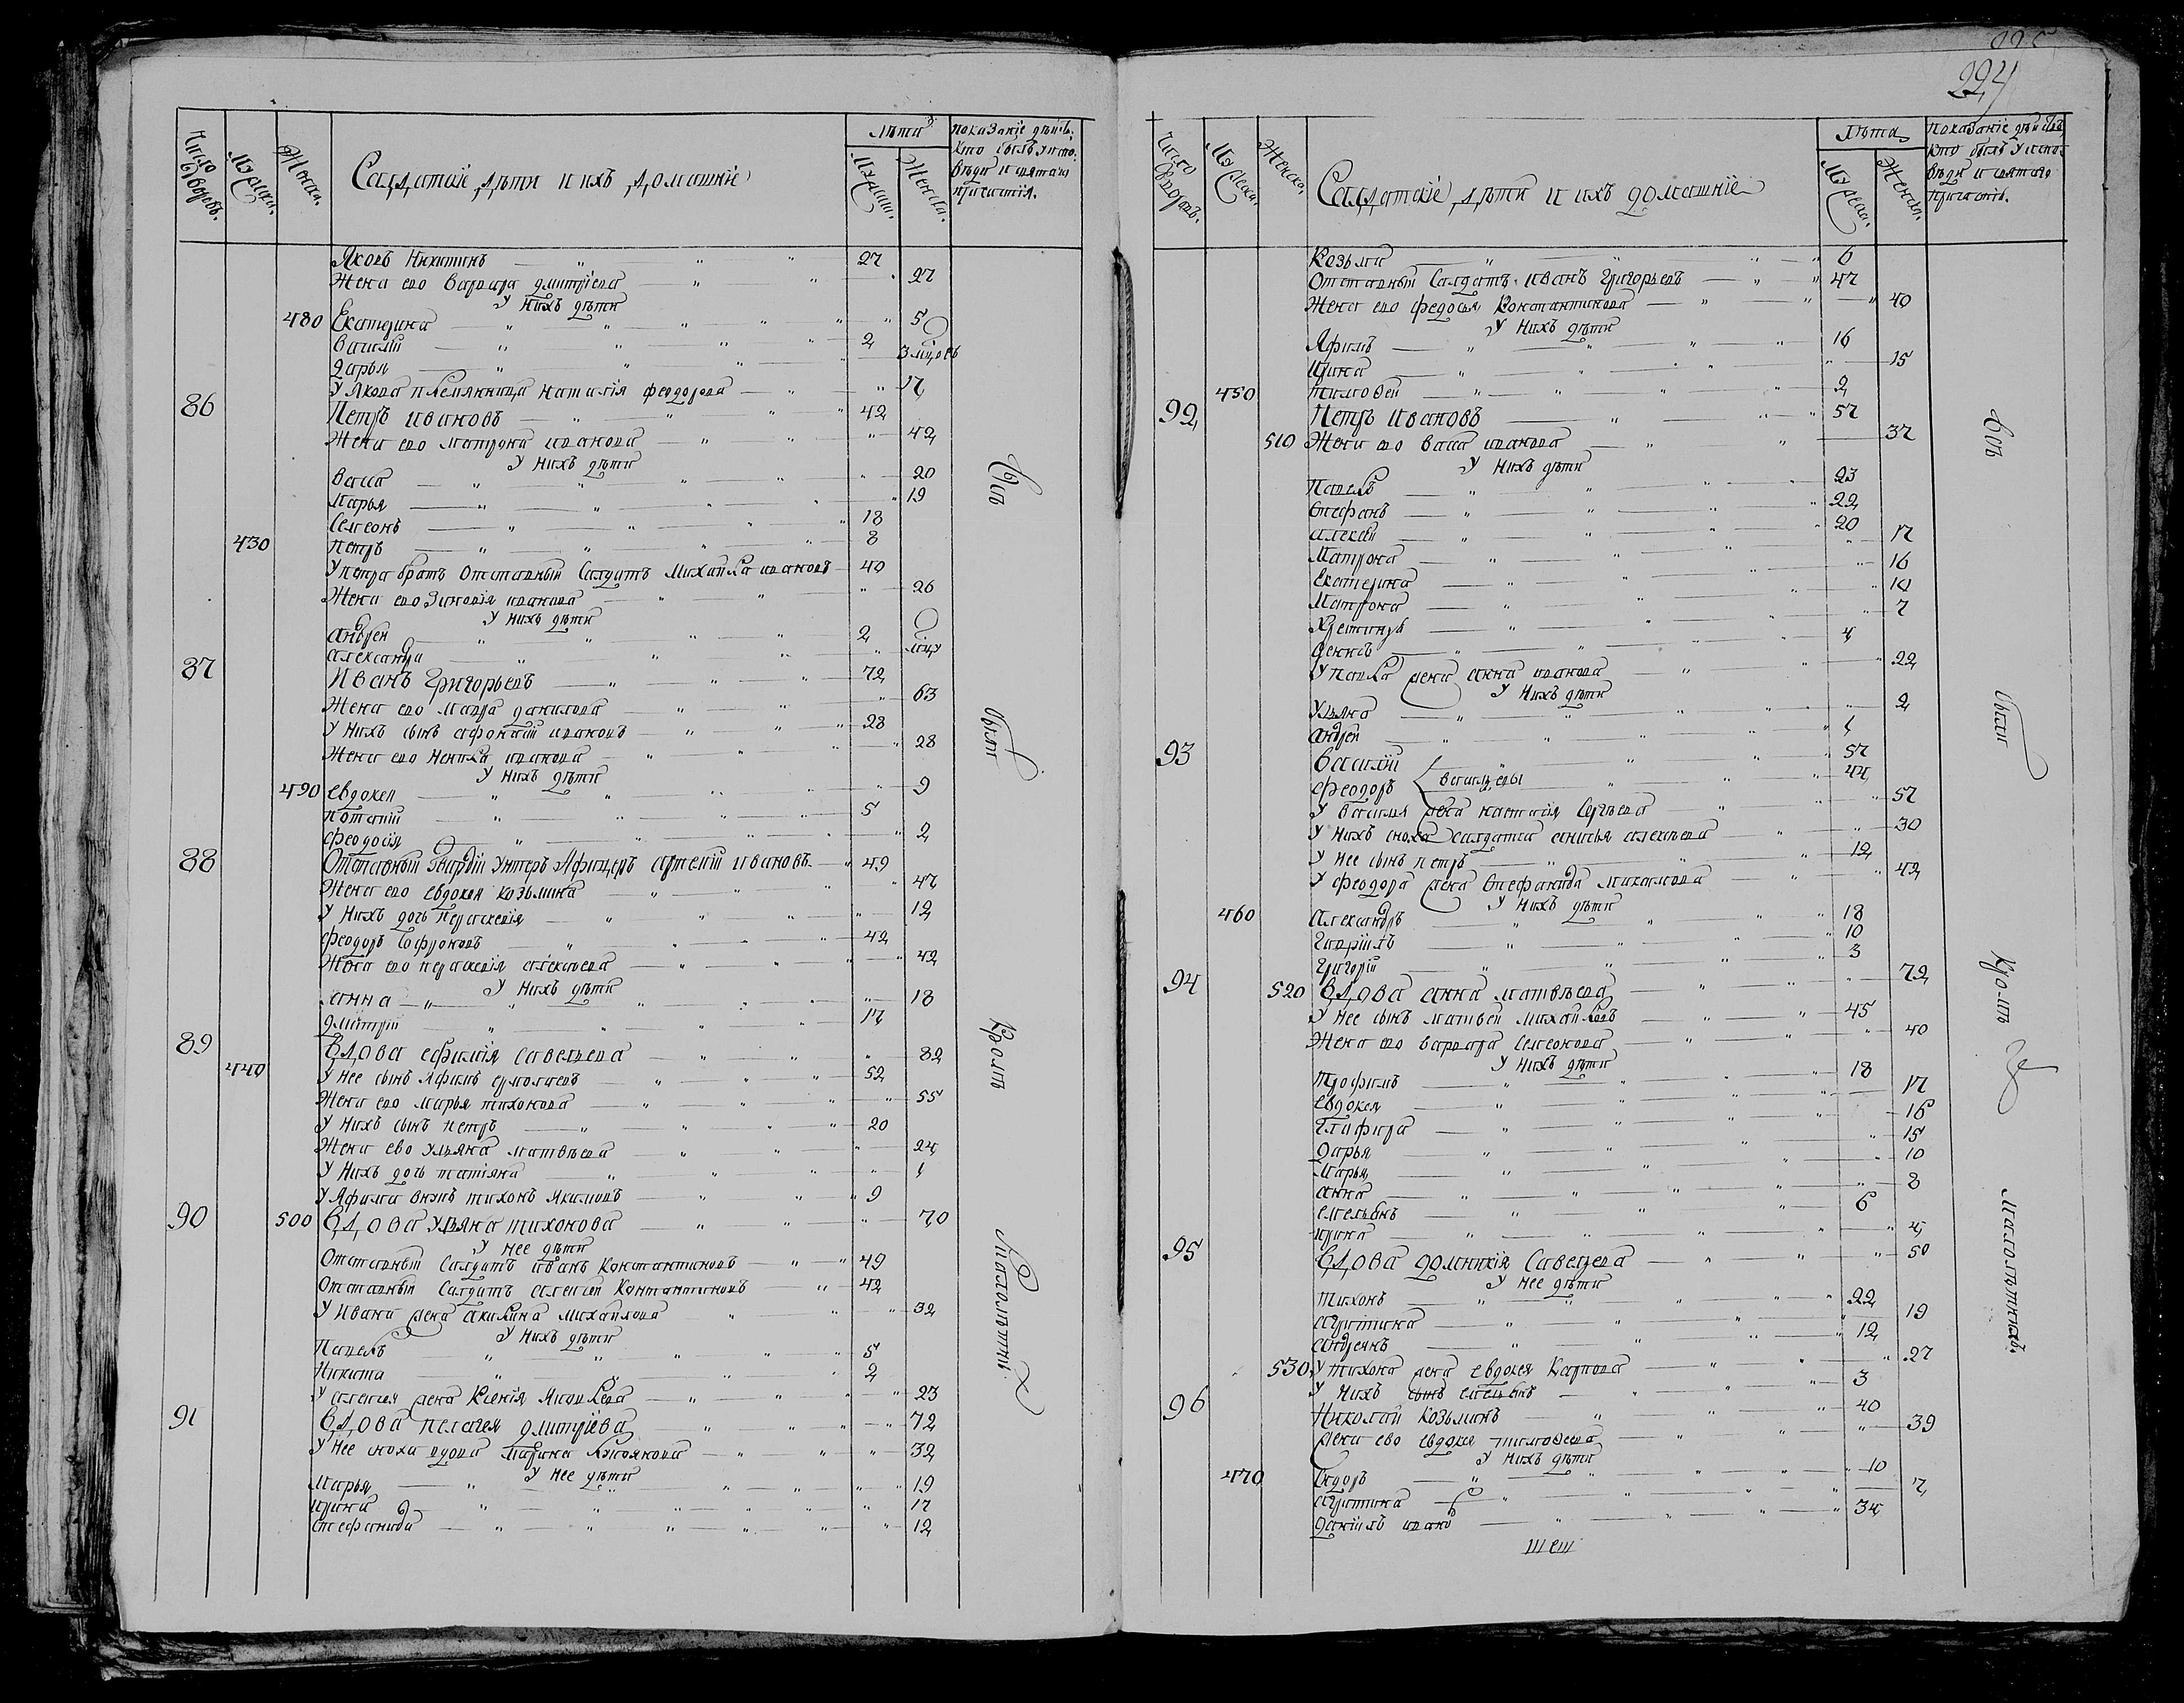 Число дворовъ. Мужеска. Женска. Салдатские дѣти и ихъ домашние Лѣта Мужеска. Женска. показание дѣйств. кто былъ у исповѣди и святаго причастия.
Яковъ Никитинъ 27
Жена ево Варвара Дмитриева 27
У нихъ дѣти
480 Екатерина 5
Василий 2
Дарья 3 мцовъ
У Якова племянница Наталия Феодорова 17
86 Петръ Ивановъ 42
Жена ево Матрона Иванова 42
У нихъ дѣти
Васса 20
Марья 19
Семеонъ 18
430 Петръ 8
У Петра братъ отставный салдатъ Михайла Ивановъ 40
Жена ево Зиновия Иванова 26
У нихъ дѣти
Андрей 2
Александра
87 Иванъ Григорьевъ 72
Жена ево Мавра Данилова 63
У нихъ сынъ Афонасий Ивановъ 28
Жена ево Иванова 28
У нихъ дѣти
490 Евдокея 9
Потапий 5
Феодосия 2
88 Отставный гвардии ундеръ афицеръ Артемий Ивановъ 49
Жена ево Евдокея Козьмина 47
У нихъ дочь Параскевия 12
Феодоръ Софроновъ 42
Жена ево Параскевия Алексѣева 42
У нихъ дѣти
Анна 18
Дмитрий 17
89 Вдова Ефимия Савельева 82
440 У нее сынъ Яфимъ Ермолаевъ 52
Жена ево Марья Тихонова 55
У нихъ сынъ Петръ 20
Жена ево Ульяна Матвѣева 24
У нихъ дочь Татияна 1
У Яфима внукъ Тихонъ Якимовъ 9
90 500 Вдова Ульяна Тихонова 70
У нее дѣти
Отставный салдатъ Иванъ Константиновъ 49
Отставный салдатъ Алексей Константиновъ 42
У Ивана жена Акилина Михайлова 32
У нихъ дѣти
Павелъ 5
Никита 2
У Алексея жена Ксения Яковлева 23
91 Вдова Пелагея Дмитриева 72
У нее сноха вдова Марина 32
У нее дѣти
Марья 19
Ирина 17
Стефанида 12
Всѣ были кромѣ малолѣтныхъ
224
Число дворовъ. Мужеска. Женска. Салдатские дѣти и ихъ домашние Лѣта Мужеска. Женска. Показание дѣйств. кто былъ у исповѣди и святаго причастия.
Козьма 6
Отставный салдатъ Иванъ Григорьевъ 47
Жена ево Федосья Константинова 40
У нихъ дѣти
Яфимъ 16
Ирина 15
450 Тимофей 2
92 Петръ Ивановъ 57
510 Жена ево Васса Иванова 37
У нихъ дѣти
Павелъ 23
Стефанъ 22
Алексей 20
Матрона 17
Екатерина 16
Матрона 14
7
Денисъ 4
У Павла жена Анна Иванова 22
У нихъ дѣти
Ульяна 2
Андрей 1
93 Василий 57
Феодоръ Васильевы 44
У Василия жена Настасия Сергѣева 57
У нихъ сноха салдатка Анисья Алексѣева 30
У нее сынъ Петръ 12
У Феодора жена Стефанида Михайлова 42
У нихъ дѣти
460 Александръ 18
Гавриилъ 10
Григорий 3
94 520 Вдова Анна Матвѣева 72
У нее сынъ Матвей Михайловъ 45
Жена ево Варвара Семеонова 40
У нихъ дѣти
Трофимъ 18
Евдокея 17
Глафира 16
Дарья 15
Марья 10
Анна 8
Емельянъ 6
Ирина 4
95 Вдова Домникия Савельева 50
У нее дѣти
Тихонъ 22
Агрипина 19
Андреянъ 12
530 У Тихона жена Евдокея Карпова 27
У нихъ сынъ Емельянъ 3
96 Николай Козьминъ 40
Жена ево Евдокея Тимофеева 39
У нихъ дѣти
470 Федоръ 10
Агрипина 7
Даниилъ Ивановъ 34
Всѣ были кромѣ малолѣтныхъ